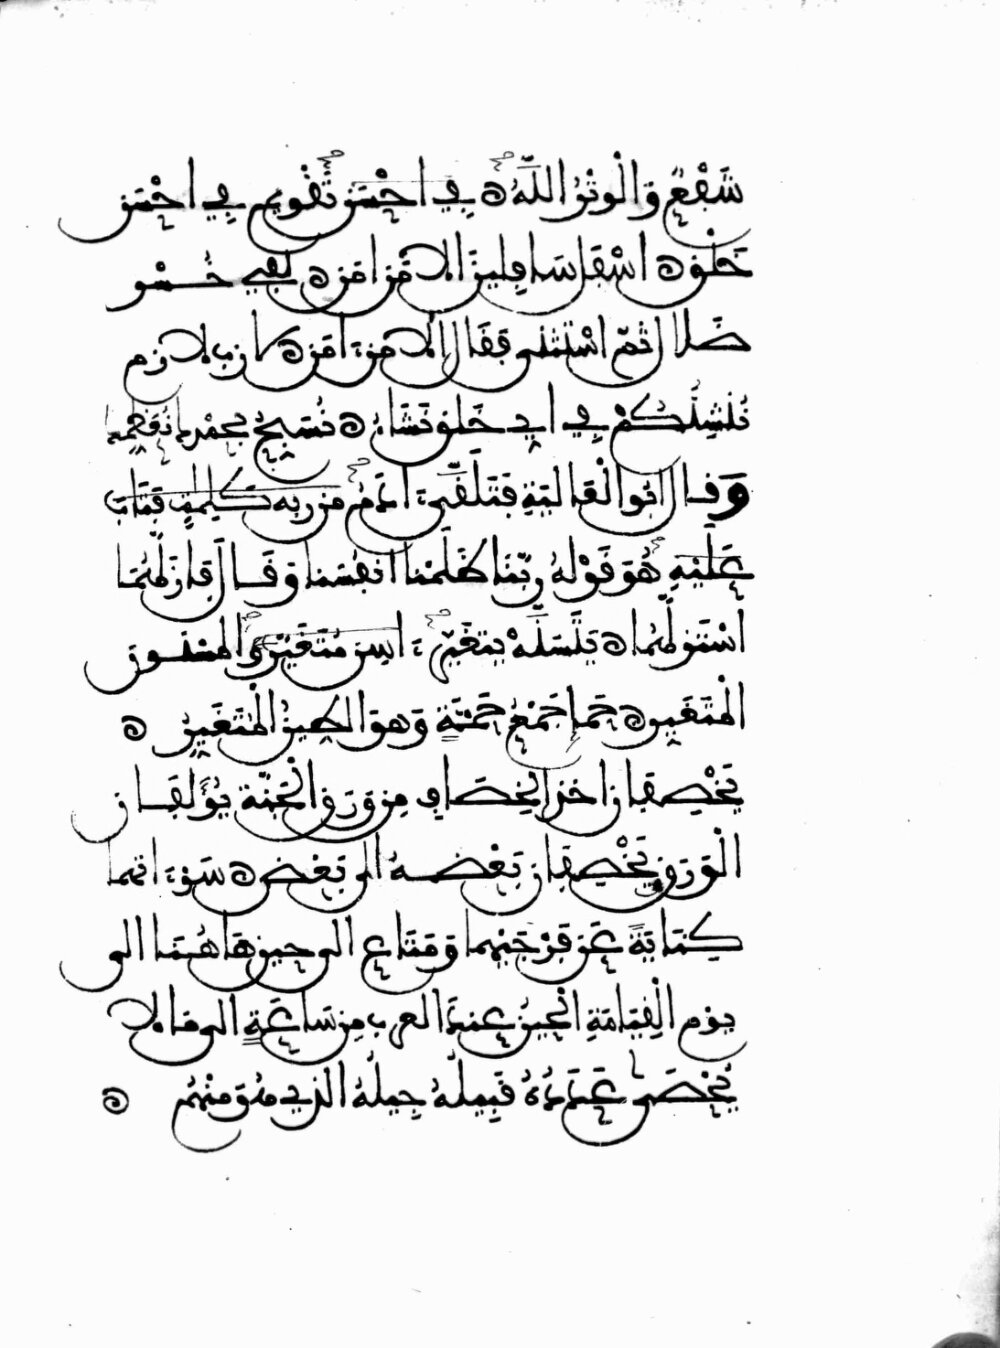 شَفْعٌ وَالْوِتْرُ اللَّهُ ه فِي أَحْسَنِ تَقْوِيمٍ فِي أَحْسَنِ
خَلْقٍ ه أَسْفَلَ سَافِلِينَ إِلَّا مَنْ آمَنَ ه لَفِي خُسْرٍ
ضَلَالٍ ثُمَّ اسْتَثْنَى فَقَالَ إِلَّا مَنْ آمَنَ ه لَازِبٍ لَازِمٍ
نُنْشِئَكُمْ فِي أَيِّ خَلْقٍ نَشَاءُ ه نُسَبِّحُ بِحَمْدِكَ نُعَظِّمُكَ
وَقَالَ أَبُو الْعَالِيَةِ فَتَلَقَّى آدَمُ مِنْ رَبِّهِ كَلِمَاتٍ فَتَابَ
عَلَيْهِ هُوَ قَوْلُهُ رَبَّنَا ظَلَمْنَا أَنْفُسَنَا وَقَالَ فَأَزَلَّهُمَا
اسْتَزَلَّهُمَا ه يَتَسَنَّهْ يَتَغَيَّرْ آسِنٍ مُتَغَيِّرٍ وَالْمَسْنُونُ
الْمُتَغَيِّرُ ه حَمَإٍ جَمْعُ حَمْأَةٍ وَهُوَ الطِّينُ الْمُتَغَيِّرُ ه
يَخْصِفَانِ أَخْذُ الْخِصَافِ مِنْ وَرَقِ الْجَنَّةِ يُؤَلِّفَانِ
الْوَرَقَ يَخْصِفَانِ بَعْضَهُ إِلَى بَعْضٍ ه سَوْءَاتِهِمَا
كِنَايَةٌ عَنْ فَرْجَيْهِمَا وَمَتَاعٌ إِلَى حِينٍ هَاهُنَا إِلَى
يَوْمِ الْقِيَامَةِ الْحِينُ عِنْدَ الْعَرَبِ مِنْ سَاعَةٍ إِلَى مَا لَا
يُحْصَى عَدَدُهُ قَبِيلُهُ جِيلُهُ الَّذِي هُوَ مِنْهُمْ ه